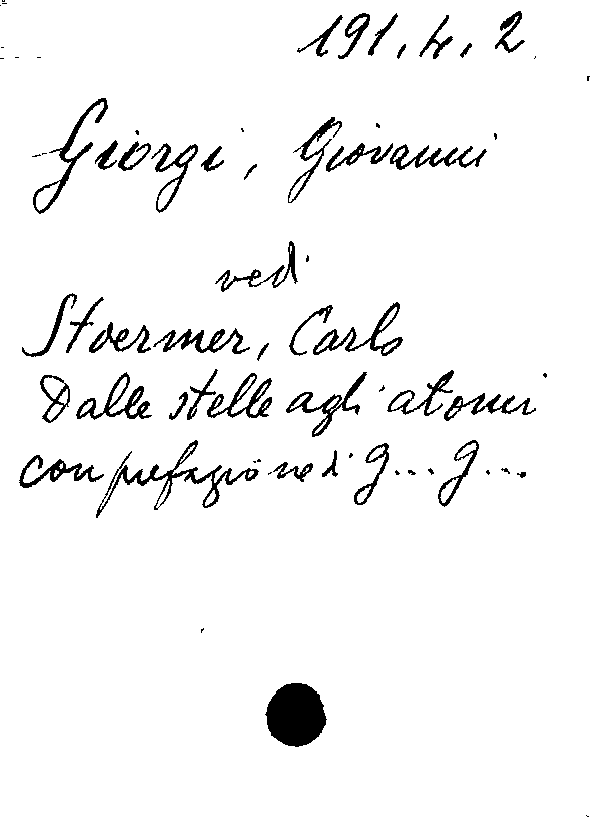 191.4.2
Giorgi, Giovanni
vedi
Stoermer, Carlo
Dalle stelle agli atomi
con prefazione di G... G...